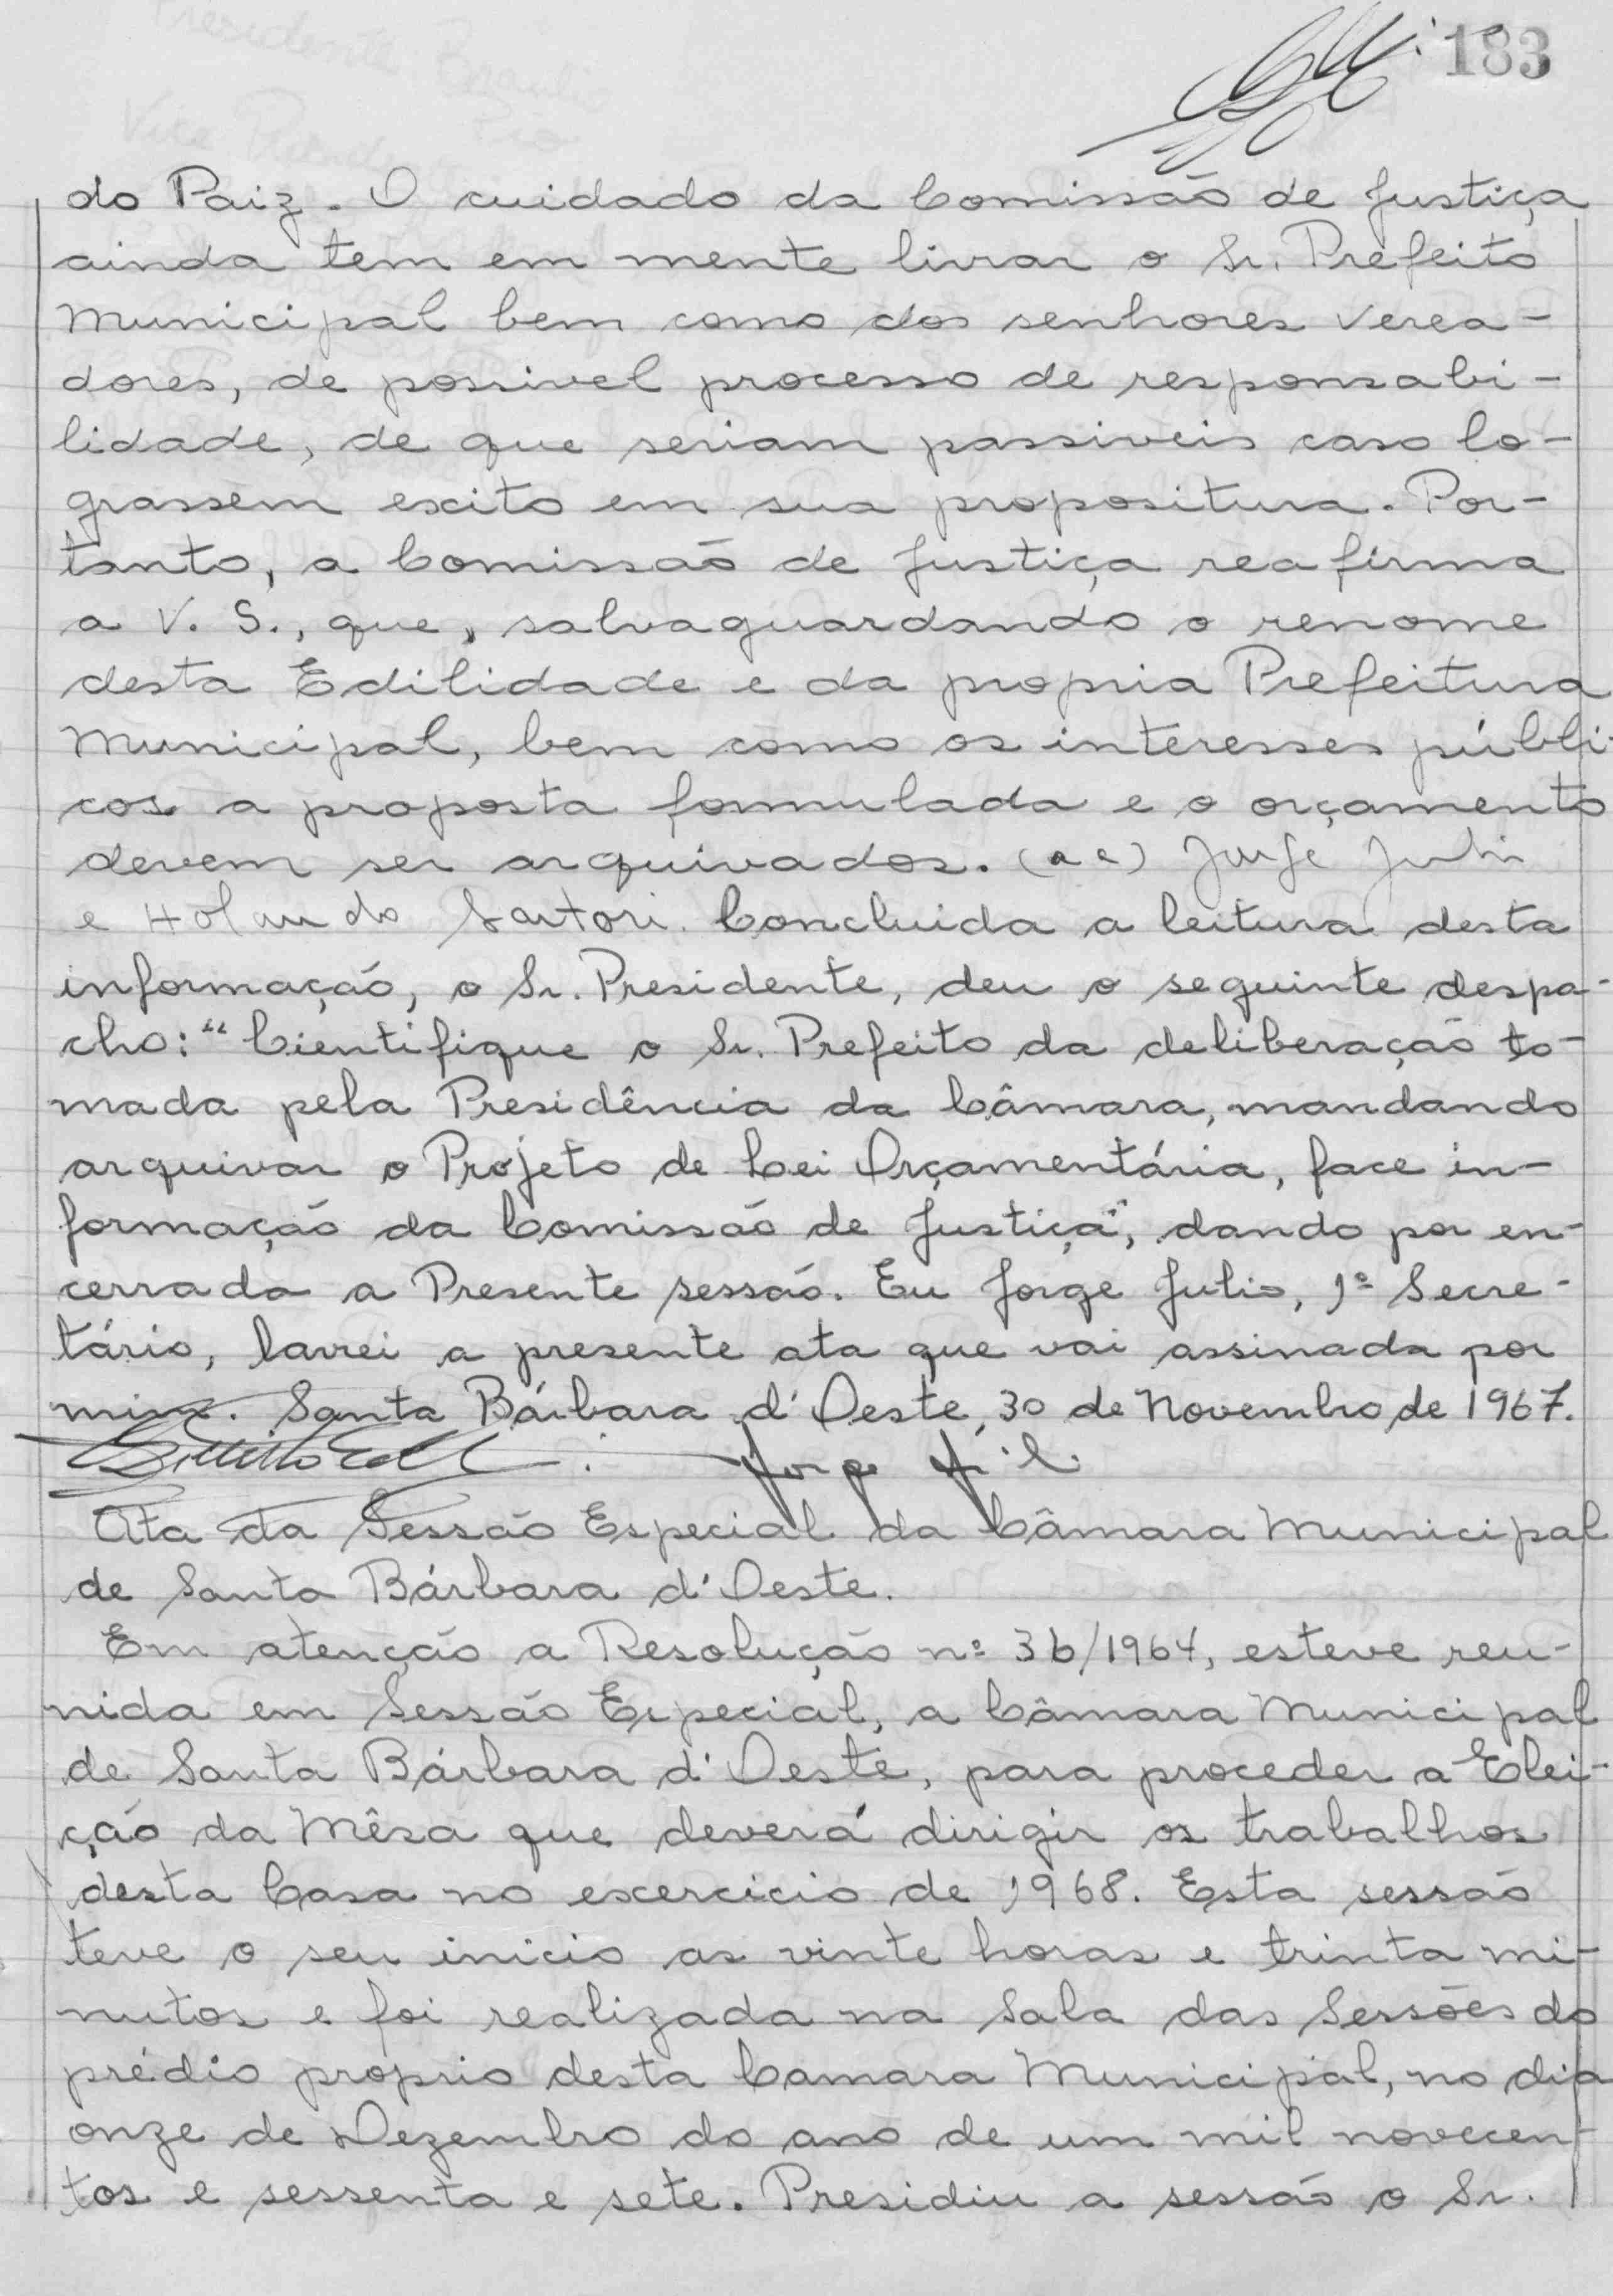 183
do Paiz. O cuidado da Comissão de Justiça
ainda tem em mente livrar o Sr. Prefeito
Municipal bem como dos senhores verea-
dores, de possivel processo de responsabi-
lidade, de que seriam passiveis caso lo-
grassem excito em sua propositura. Por-
tanto, a Comissão de Justiça reafirma
a V. S., que, salvaguardando o renome
desta Edilidade e da propria Prefeitura
Municipal, bem como os interesses públi-
cos a proposta formulada e o orçamento
devem ser arquivados. (a a) Jorge Julio
e Holando Sartori. Concluida a leitura desta
informação, o Sr. Presidente, deu o seguinte despa-
cho: "Cientifique o Sr. Prefeito da deliberação to-
mada pela Presidência da Câmara, mandando
arquivar o Projeto de Lei Orçamentária, face in-
formação da Comissão de Justiça", dando por en-
cerrada a Presente sessão. Eu Jorge Julio, 1º Secre-
tário, lavrei a presente ata que vai assinada por
mim. Santa Bárbara d'Oeste, 30 de Novembro de 1967.
Jorge
Ata da Sessão Especial da Câmara Municipal
de Santa Bárbara d'Oeste.
Em atenção a Resolução nº 36/1964, esteve reu-
nida em Sessão Especial, a Câmara Municipal
de Santa Bárbara d'Oeste, para proceder a Elei-
ção da Mêsa que deverá dirigir os trabalhos
desta Casa no excercicio de 1968. Esta sessão
teve o seu inicio as vinte horas e trinta mi-
nutos e foi realizada na Sala das Sessões do
prédio proprio desta Camara Municipal, no dia
onze de Dezembro do ano de um mil novecen-
tos e sessenta e sete. Presidiu a sessão o Sr.